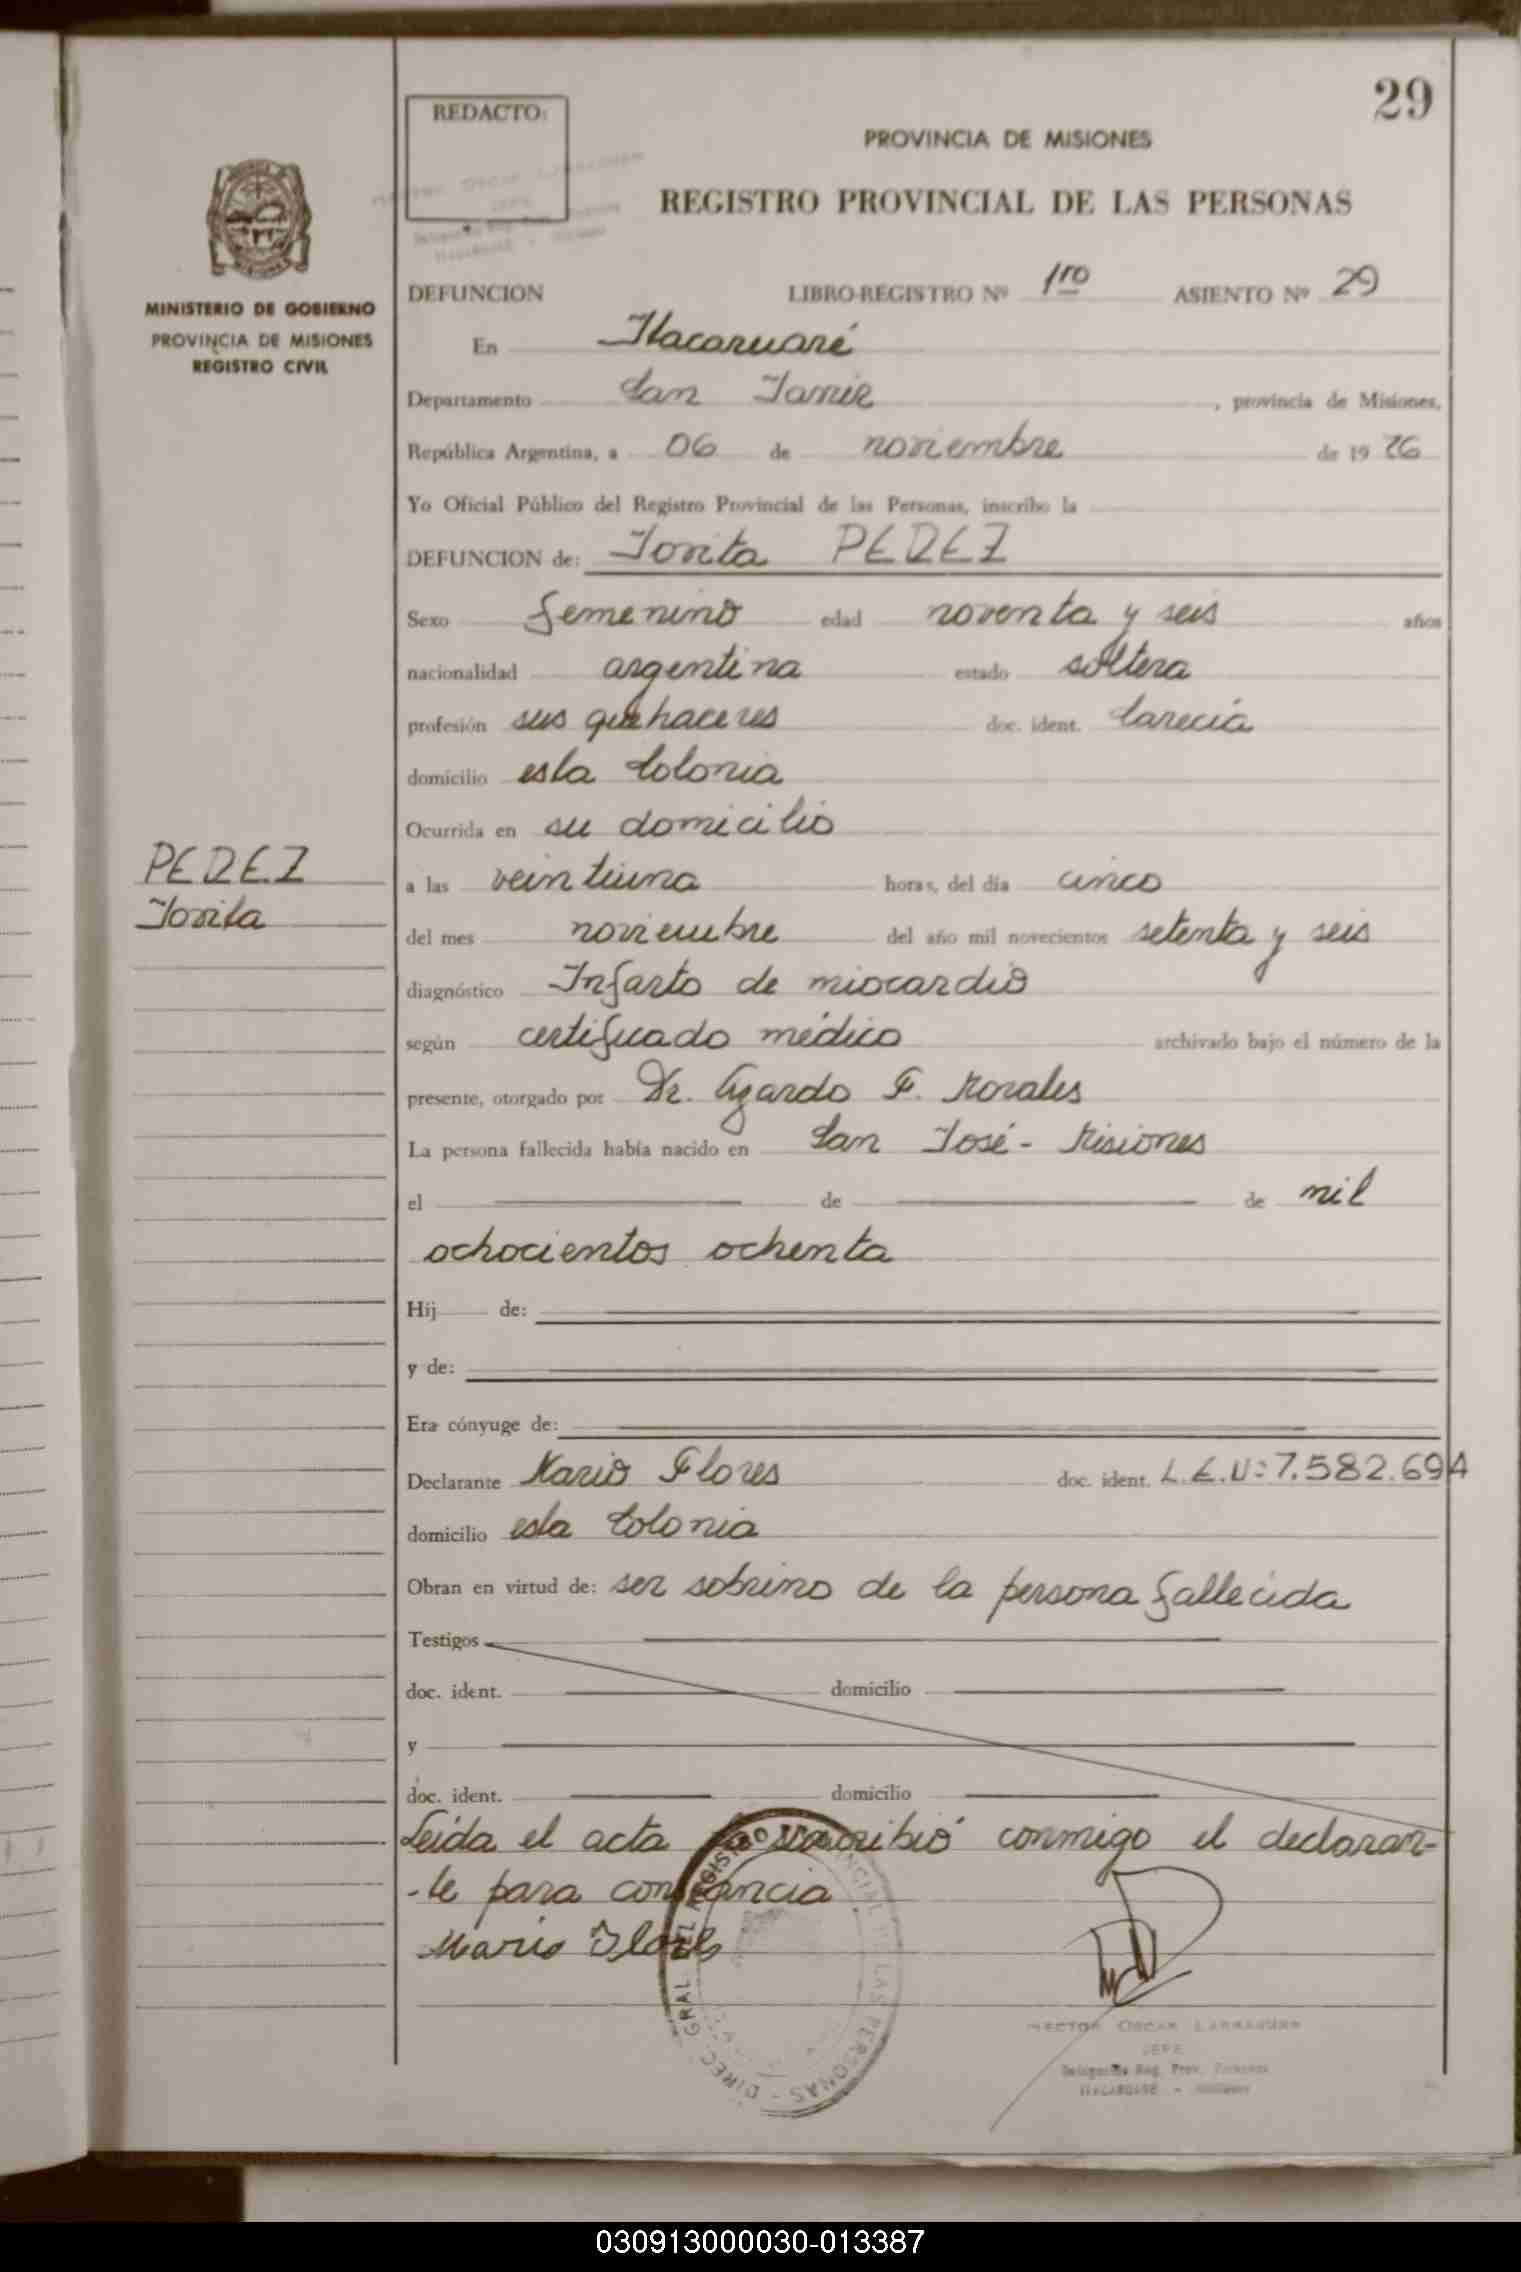 29
REDACTO:
PROVINCIA DE MISIONES
REGISTRO PROVINCIAL DE LAS PERSONAS
MINISTERIO DE GOBIERNO
PROVINCIA DE MISIONES
REGISTRO CIVIL
DEFUNCION LIBRO-REGISTRO Nº 1ro ASIENTO Nº 29
En Itacaruaré
Departamento San Javier, provincia de Misiones,
República Argentina, a 06 de noviembre de 1976
Yo Oficial Público del Registro Provincial de las Personas, inscribo la
DEFUNCION de: Jovita PEREZ
Sexo femenino edad noventa y seis años
nacionalidad argentina estado soltera
profesión sus quehaceres doc. ident. Carecía
domicilio esta Colonia
Ocurrida en su domicilio
PEREZ
Jovita
a las veintiuna horas, del día cinco
del mes noviembre del año mil novecientos setenta y seis
diagnóstico Infarto de miocardio
según certificado médico archivado bajo el número de la
presente, otorgado por Dr. F. Morales
La persona fallecida había nacido en San José - Misiones
el de de mil
ochocientos ochenta
Hij de:
y de:
Era cónyuge de:
Declarante Mario Flores doc. ident. L.E.Nº: 7.582.694
domicilio esta Colonia
Obran en virtud de: ser sobrino de la persona fallecida
Testigos
doc. ident. domicilio
y
doc. ident. domicilio
Leída el acta suscribió conmigo el declaran-
-te para constancia
Mario Flores
DIREC. GRAL. DEL REGISTRO PROVINCIAL DE LAS PERSONAS
HECTOR OSCAR
JEFE
Delegación Reg. Prov. Personas
ITACARUARE - Misiones
030913000030-013387